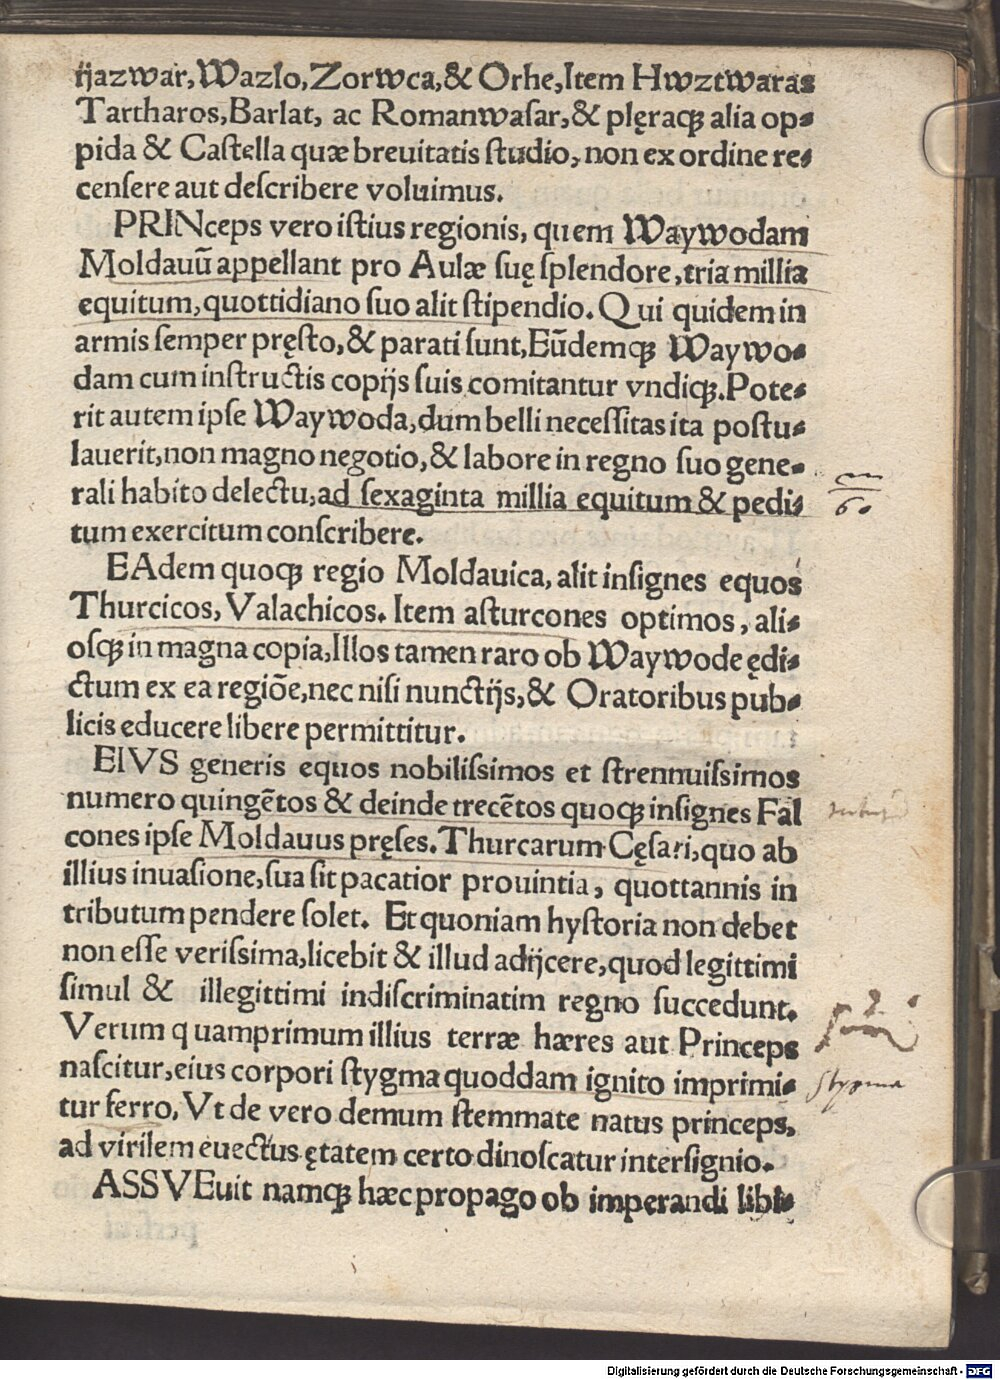 ijazwar, Wazlo, Zorwca, & Orhe, Item Hwztwaras
Tartharos, Barlat, ac Romanwaſar, & plęraqꝫ alia op⸗
pida & Caſtella quæ breuitatis ſtudio, non ex ordine re⸗
cenſere aut deſcribere voluimus.
PRINceps vero iſtius regionis, quem Waywodam
Moldauū appellant pro Aulæ ſuę ſplendore, tria millia
equitum, quottidiano ſuo alit ſtipendio. Qui quidem in
armis ſemper pręſto, & parati ſunt, Eūdemqꝫ Waywo⸗
dam cum inſtructis copijs ſuis comitantur vndiqꝫ. Pote⸗
rit autem ipſe Waywoda, dum belli neceſſitas ita poſtu⸗
lauerit, non magno negotio, & labore in regno ſuo gene⸗
rali habito delectu, ad ſexaginta millia equitum & pedi⸗
tum exercitum conſcribere.
m
60
EAdem quoqꝫ regio Moldauica, alit inſignes equos
Thurcicos, Valachicos. Item aſturcones optimos, ali⸗
oſqꝫ in magna copia, Illos tamen raro ob Waywode ędi⸗
ctum ex ea regiōe, nec niſi nunctijs, & Oratoribus pub⸗
licis educere libere permittitur.
EIVS generis equos nobiliſsimos et ſtrennuiſsimos
numero quingētos & deinde trecētos quoqꝫ inſignes Fal
cones ipſe Moldauus pręſes. Thurcarum Cęſari, quo ab
illius inuaſione, ſua ſit pacatior prouintia, quottannis in
tributum pendere ſolet. Et quoniam hyſtoria non debet
non eſſe veriſsima, licebit & illud adijcere, quod legittimi
ſimul & illegittimi indiſcriminatim regno ſuccedunt.
Verum quamprimum illius terræ hæres aut Princeps
naſcitur, eius corpori ſtygma quoddam ignito imprimi⸗
ſtygma
tur ferro, Vt de vero demum ſtemmate natus princeps,
ad virilem euectus ętatem certo dinoſcatur interſignio.
ASSVEuit namqꝫ hæc propago ob imperandi libi⸗
Digitalisierung gefördert durch die Deutsche Forschungsgemeinschaft - DFG